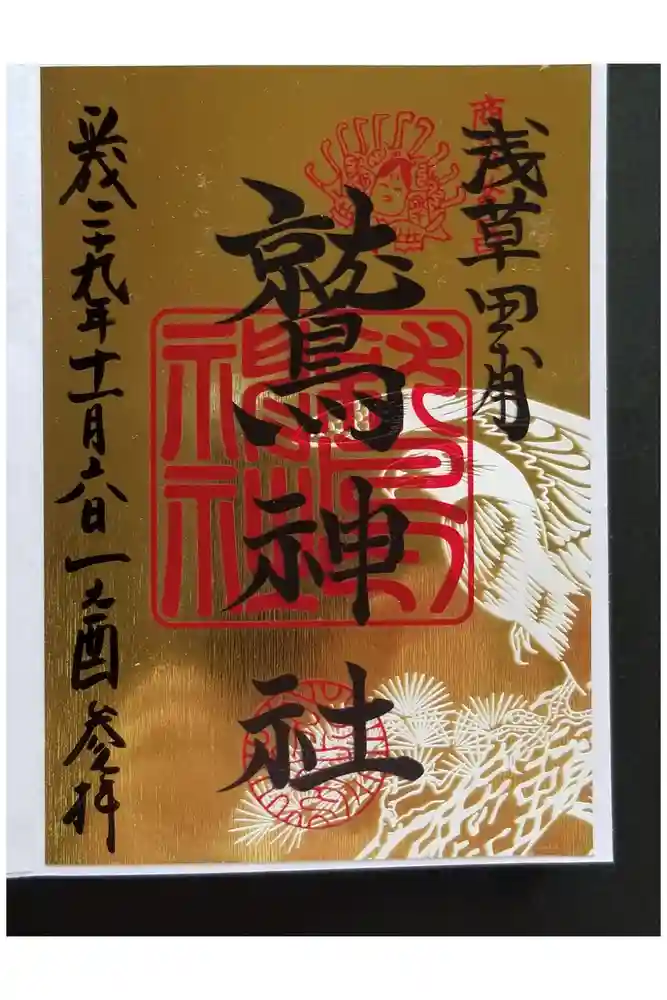 浅草田甫
鷲神社
平成二十九年十一月六日一之酉参拝